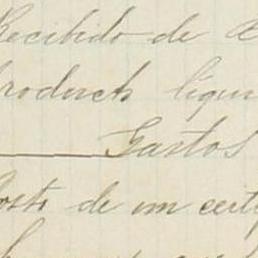 Recibido de
product líqui
Gastos
Costo de un certi